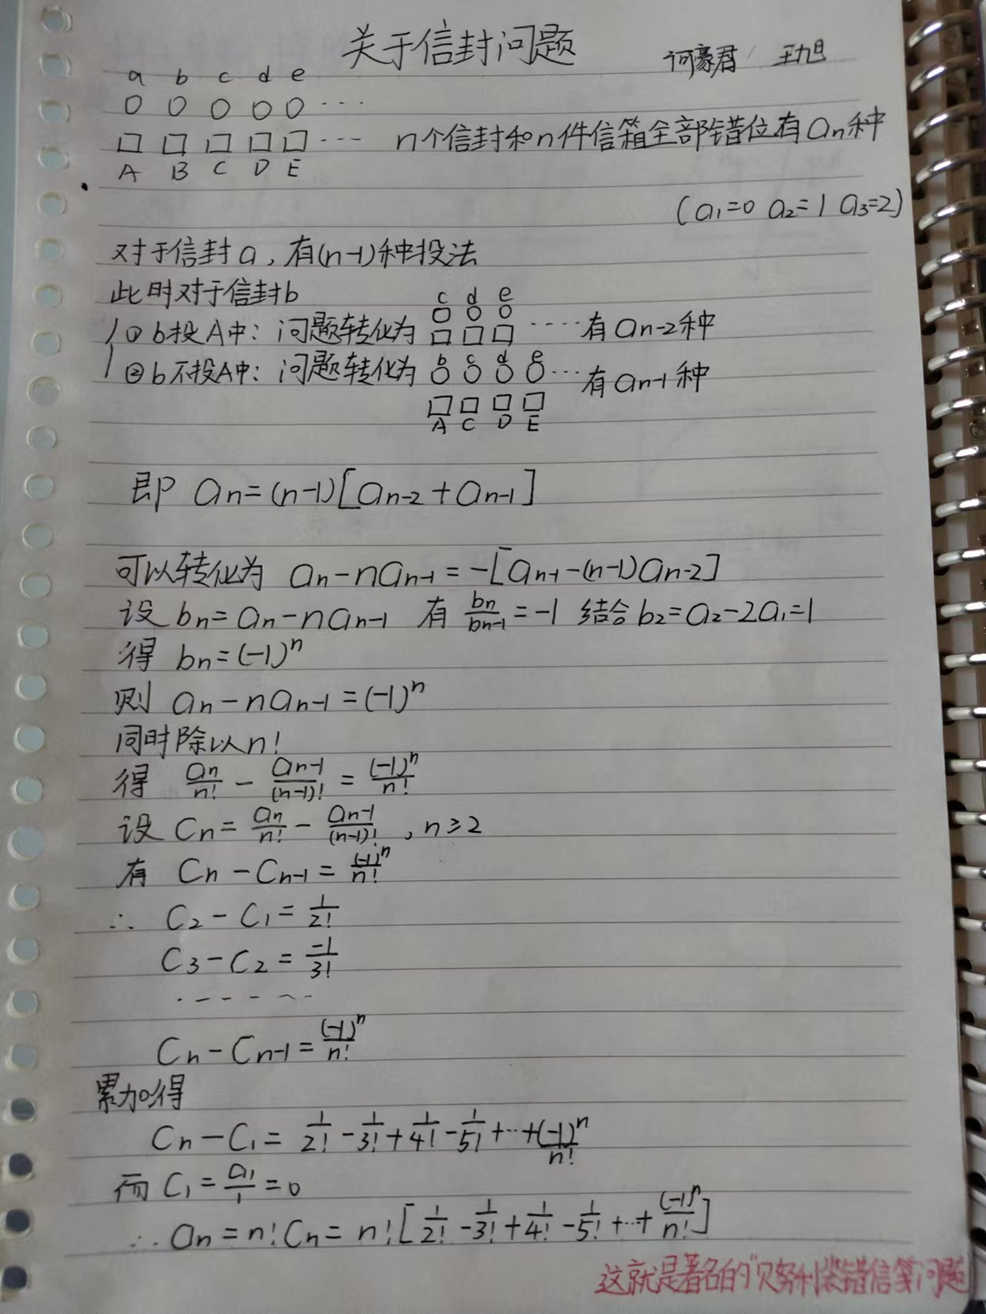 关于信封问题
何豪君 王旭
a b c d e
○ ○ ○ ○ ○ ···
□ □ □ □ □ ··· n个信封和n件信箱全部错位有an种
A B C D E
(a₁=0 a₂=1 a₃=2)
对于信封a,有(n-1)种投法
此时对于信封b
c d e
○ ○ ○
① b投A中: 问题转化为 □ □ □ ···· 有an-2种
b c d e
② b不投A中: 问题转化为 ○ ○ ○ ○ ··· 有an-1种
□ □ □ □
A C D E
即 an=(n-1)[an-2+an-1]
可以转化为 an-nan-1=-[an-1-(n-1)an-2]
设 bn=an-nan-1 有 bn/bn-1=-1 结合 b₂=a₂-2a₁=1
得 bn=(-1)ⁿ
则 an-nan-1=(-1)ⁿ
同时除以n!
得 an/n! - an-1/(n-1)! = (-1)ⁿ/n!
设 Cn = an/n! - an-1/(n-1)! , n≥2
有 Cn-Cn-1=(-1)ⁿ/n!
∴ C₂-C₁=1/2!
C₃-C₂=-1/3!
······
Cn-Cn-1=(-1)ⁿ/n!
累加得
Cn-C₁= 1/2!-1/3!+1/4!-1/5!+···+(-1)ⁿ/n!
而 C₁=a₁/1=0
∴ an=n!Cn=n![1/2!-1/3!+1/4!-1/5!+···+(-1)ⁿ/n!]
这就是著名的"贝努利装错信笺问题